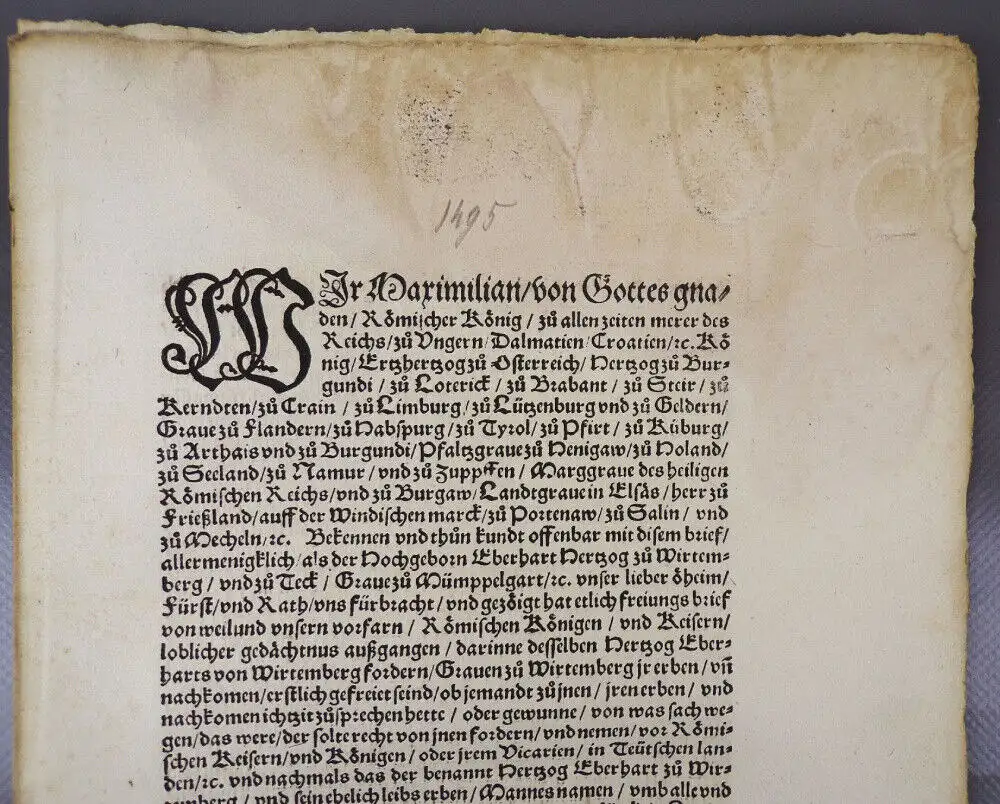 1495
WIr Maximilian/von Gottes gna/
den/ Römischer König / zů allen zeiten merer des
Reichs/zů Vngern/Dalmatien/Croatien/ꝛc. Kö
nig/Ertzhertzog zů Osterreich/ Hertzog zů Bur-
gundi / zů Loterick / zů Brabant / zů Steir/ zů
Kerndten/zů Crain / zů Limburg/zů Lützenburg vnd zů Geldern/
Graue zů Flandern/zů Habspurg/zů Tyrol/zů Pfirt / zů Kiburg/
zů Arthais vnd zů Burgundi/Pfaltzgraue zů Henigaw/zů Holand/
zů Seeland/zů Namur / vnd zů Zupffen / Marggraue des heiligen
Römischen Reichs/vnd zů Burgaw/Landtgraue in Elsäs/herr zů
Frießland/auff der Windischen marck/zů Portenaw/zů Salin / vnd
zů Mecheln/ꝛc. Bekennen vnd thůn kundt offenbar mit disem brief/
allermenigklich/als der Hochgeborn Eberhart Hertzog zů Wirtem-
berg / vnd zů Teck / Graue zů Mümppelgart/ꝛc. vnser lieber öheim/
Fürst/vnd Rath/vns fürbracht / vnd gezöigt hat etlich freiungs brief
von weilund vnsern vorfarn / Römischen Königen / vnd Keisern/
loblicher gedächtnus außgangen / darinne desselben Hertzog Eber-
harts von Wirtemberg fordern/Grauen zů Wirtemberg jr erben / vn̄
nachkomen/erstlich gefreiet seind/ob jemandt zů jnen / jren erben / vnd
nachkomen ichtzit zůsprechen hette / oder gewunne / von was sach we-
gen/das were/der solte recht von jnen fordern/vnd nemen/vor Römi-
schen Keisern/vnd Königen / oder jrem Vicarien / in Teütschen lan-
den/ꝛc. vnd nachmals das der benannt Hertzog Eberhart zů Wir-
temberg / vnd sein ehelich leibs erben / Mannes namen / vmb alle vnd